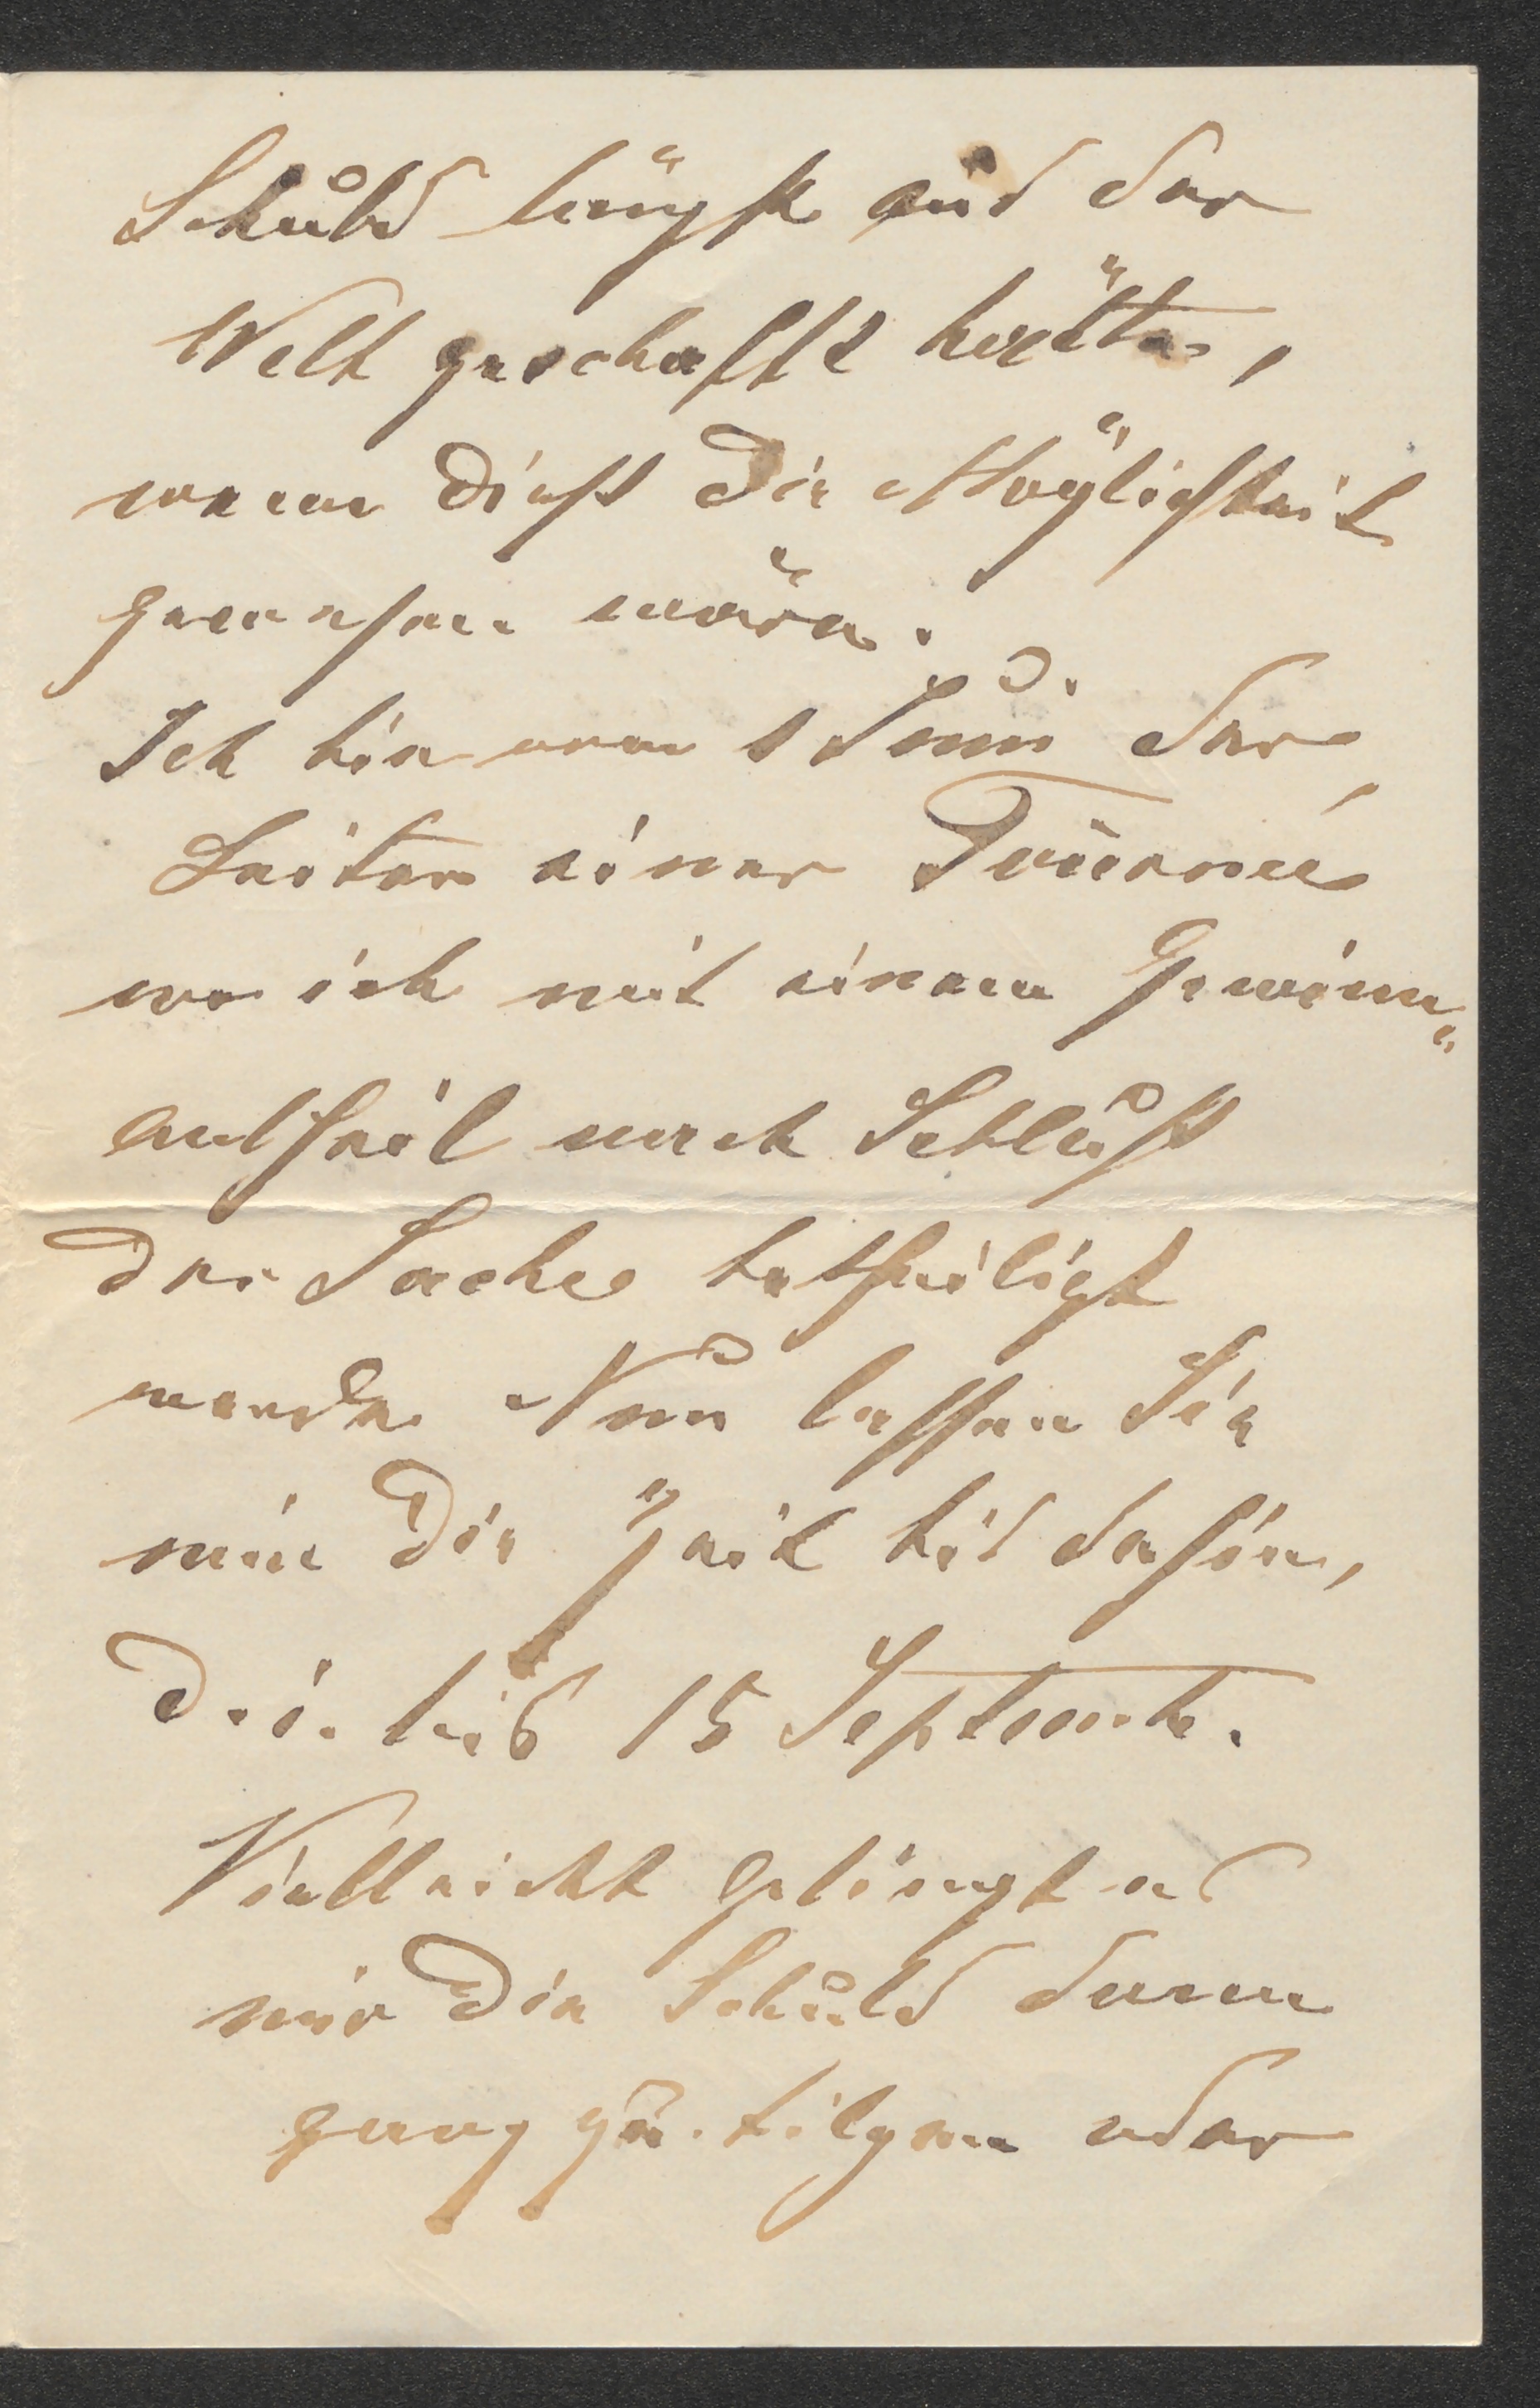 Schuld längst aus der
Welt geschafft hätte,
wenn dieß die Möglichkeit
gewesen wäre.
Ich bin vom 1 Juni der
Leiter einer Tournee
wo ich mit einem Gewinn„
antheil nach Schluß
der Sache betheiligt
werde Nun lassen Sie
mir die Zeit bis dahin,
d. i. bis 15 Septemb.
Vielleicht gelingt es
mir die Schuld dann
ganz zu tilgen oder